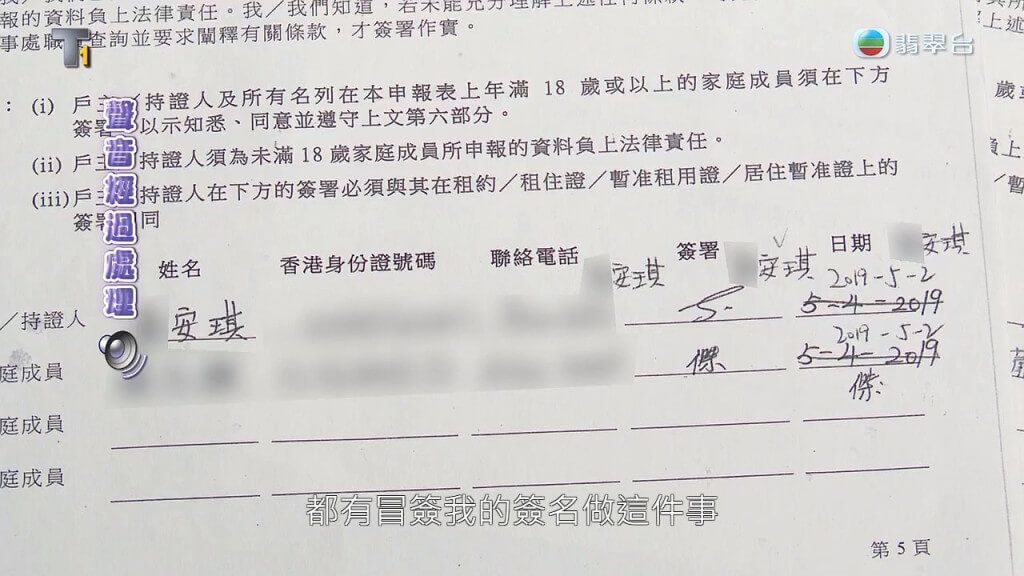 報的資料負上法律責任。我／我們知道，若未能充分理解上述任何條款
事處職 查詢並要求闡釋有關條款，才簽署作實。
翡翠台
: (i) 戶主／持證人及所有名列在本申報表上年滿 18 歲或以上的家庭成員須在下方
簽署 以示知悉、同意並遵守上文第六部分。
(ii) 戶主 持證人須為未滿18歲家庭成員所申報的資料負上法律責任。
(iii) 戶主 持證人在下方的簽署必須與其在租約／租住證／暫准租用證／居住暫准證上的
簽署 同
聲音經過處理
姓名 香港身份證號碼 聯絡電話 簽署 日期
安琪 安琪 安琪
2019-5-2
／持證人 安琪 5-4-2019
2019-5-2
庭成員 傑 5-4-2019
傑
庭成員
庭成員
都有冒簽我的簽名做這件事
第 5 頁